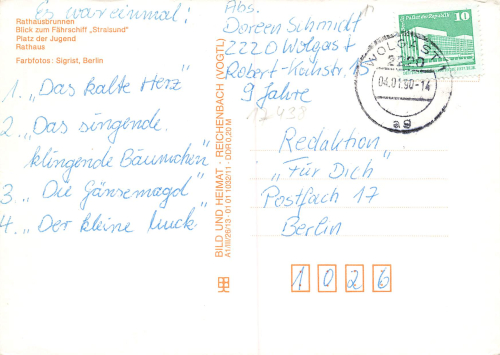 Es war einmal!
Rathausbrunnen
Blick zum Fährschiff "Stralsund"
Platz der Jugend
Rathaus
Farbfotos: Sigrist, Berlin
1. „Das kalte Herz"
2. „Das singende,
klingende Bäumchen"
3. „Die Gänsemagd"
4. „Der kleine Muck"
BILD UND HEIMAT · REICHENBACH (VOGTL)
A1/III/26/13 · 01 01 1032/11 · DDR 0,20 M
Abs.
Doreen Schmidt
2220 Wolgast
Robert-Kochstr.
9 Jahre
WOLGAST 1
2220
04.01.90-14
10
Redaktion
„Für Dich"
Postfach 17
Berlin
1026